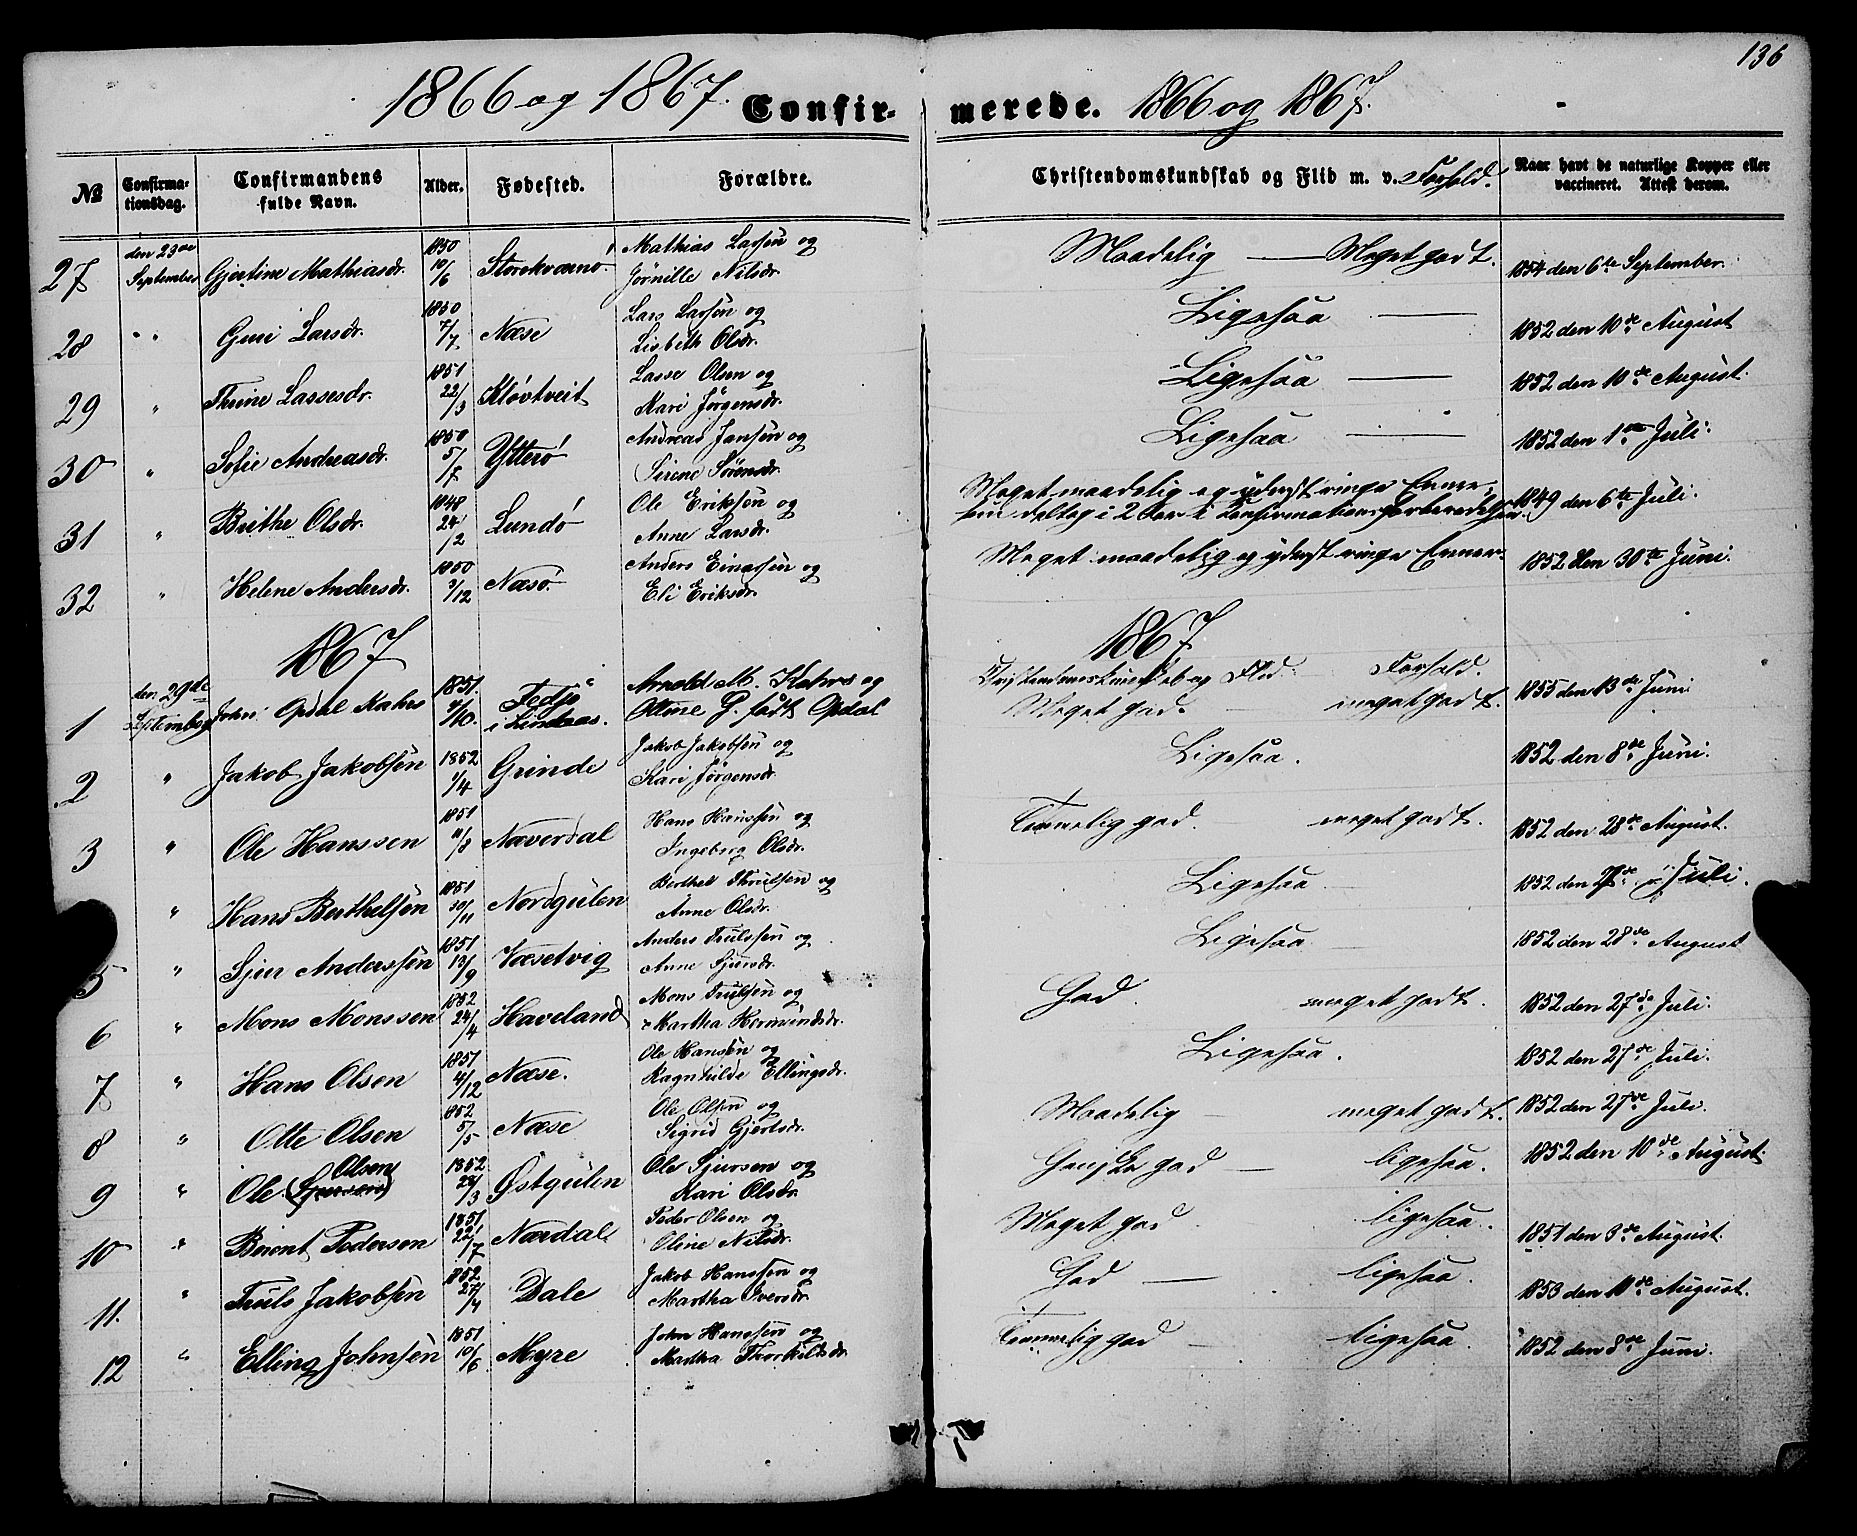 136
1866 og 1867. Confirmerede. 1866 og 1867.
No Confirmationsdag. Confirmandens fulde Navn. Alder. Fødested. Forældre. Christendomskundskab og Flid m. v. Forhold. Naar havt de naturlige Kopper eller vaccineret. Attest derom.
27 den 23de September Gjertine Mathiasdr. 1850 10/6 Mathias Larsen og Nilsdr. Maadelig — Meget godt. 1854 den 6te September.
28 " Guri Larsdr. 1850 7/7 Næse Lars Larsen og Lisbeth Olsdr. Ligesaa — 1852 den 10de August
29 " Larsesdr. 1851 22/3 Kløvtveit Lasse Olsen og Kari Jørgensdr. Ligesaa — 1852 den 10de August.
30 " Sofie Andreasdr. 1850 Ytterø Andreas Jansen og Sirene Sørensdr. Ligesaa — 1852 den 1ste Juli.
31 " Brithe Olsdr. 1848 24/2 Lundø Ole Eriksen og Anne Larsdr. Meget maadelig og yderst ringe Evner, deltog i 2 Aar i Confirmationsforberedelsen. 1849 den 6te Juli.
32 " Helene Andersdr. 1850 3/12 Næsø Anders Einarsen og Eli Eriksdr. Meget maadelig og yderst ringe Evner. 1852 den 30te Juni.
1867 1867
Christendomskundskab og Flid. Forhold.
1 den 29de September John Opdal Kahrs 1851. Fedje i Lindaas. Arnold M. Kahrs og G. født Opdal Meget god. meget godt. 1855 den 13de Juni
2 " Jakob Jakobsen 1852 1/4 Grinde Jakob Jakobsen og Kari Jørgensdr. Ligesaa. 1852 den 8de Juni.
3 " Ole Hanssen 1851 11/8 Næverdal Hans Hanssen og Ingeborg Olsdr. Temmelig god. meget godt. 1852 den 28de August.
" Hans Berthelsen 1851 30/11 Nordgulen Berthel Thrulsen og Anne Olsdr. Ligesaa — 1852 den Juli.
5 " Sjur Anderssen 1851 13/9 Væsetvig Anders Trulssen og Anne Sjursdr. Ligesaa — 1852 den 28de August
6 " Mons Monssen 1852 24/4 Haveland Mons Trulsen og Martha Hermundsdr. God. meget godt. 1852 den 27de Juli.
7 " Hans Olsen 1851 4/12 Næse. Ole Hansen og Ragnhilde Ellingsdr. Ligesaa. 1852 den 27de Juli.
8 " Otte Olsen 1852 5/5 Næse Ole Olsen og Sigrid Gjertsdr. Maadelig — meget godt. 1852 den 27de Juli.
9 " Ole (Sjursen) Olsen 1852 28/3 Østgulen Ole Sjursen og Kari Olsdr. Ganske god — ligesaa. 1852 den 10de August.
10 " Berent Pedersen 1851. 22/7 Nærdal Peder Olsen og Oline Nilsdr. Meget god. ligesaa. 1851 den 3de August.
11. " Truls Jakobsen 1852 27/4 Dale Jakob Hanssen og Martha Iversdr. God — ligesaa. 1853 den 10de August.
12 " Elling Johnsen 1851 10/6 Myre John Hanssen og Martha Thorkildsdr. Temmelig god — ligesaa. 1852 den 8de Juni.